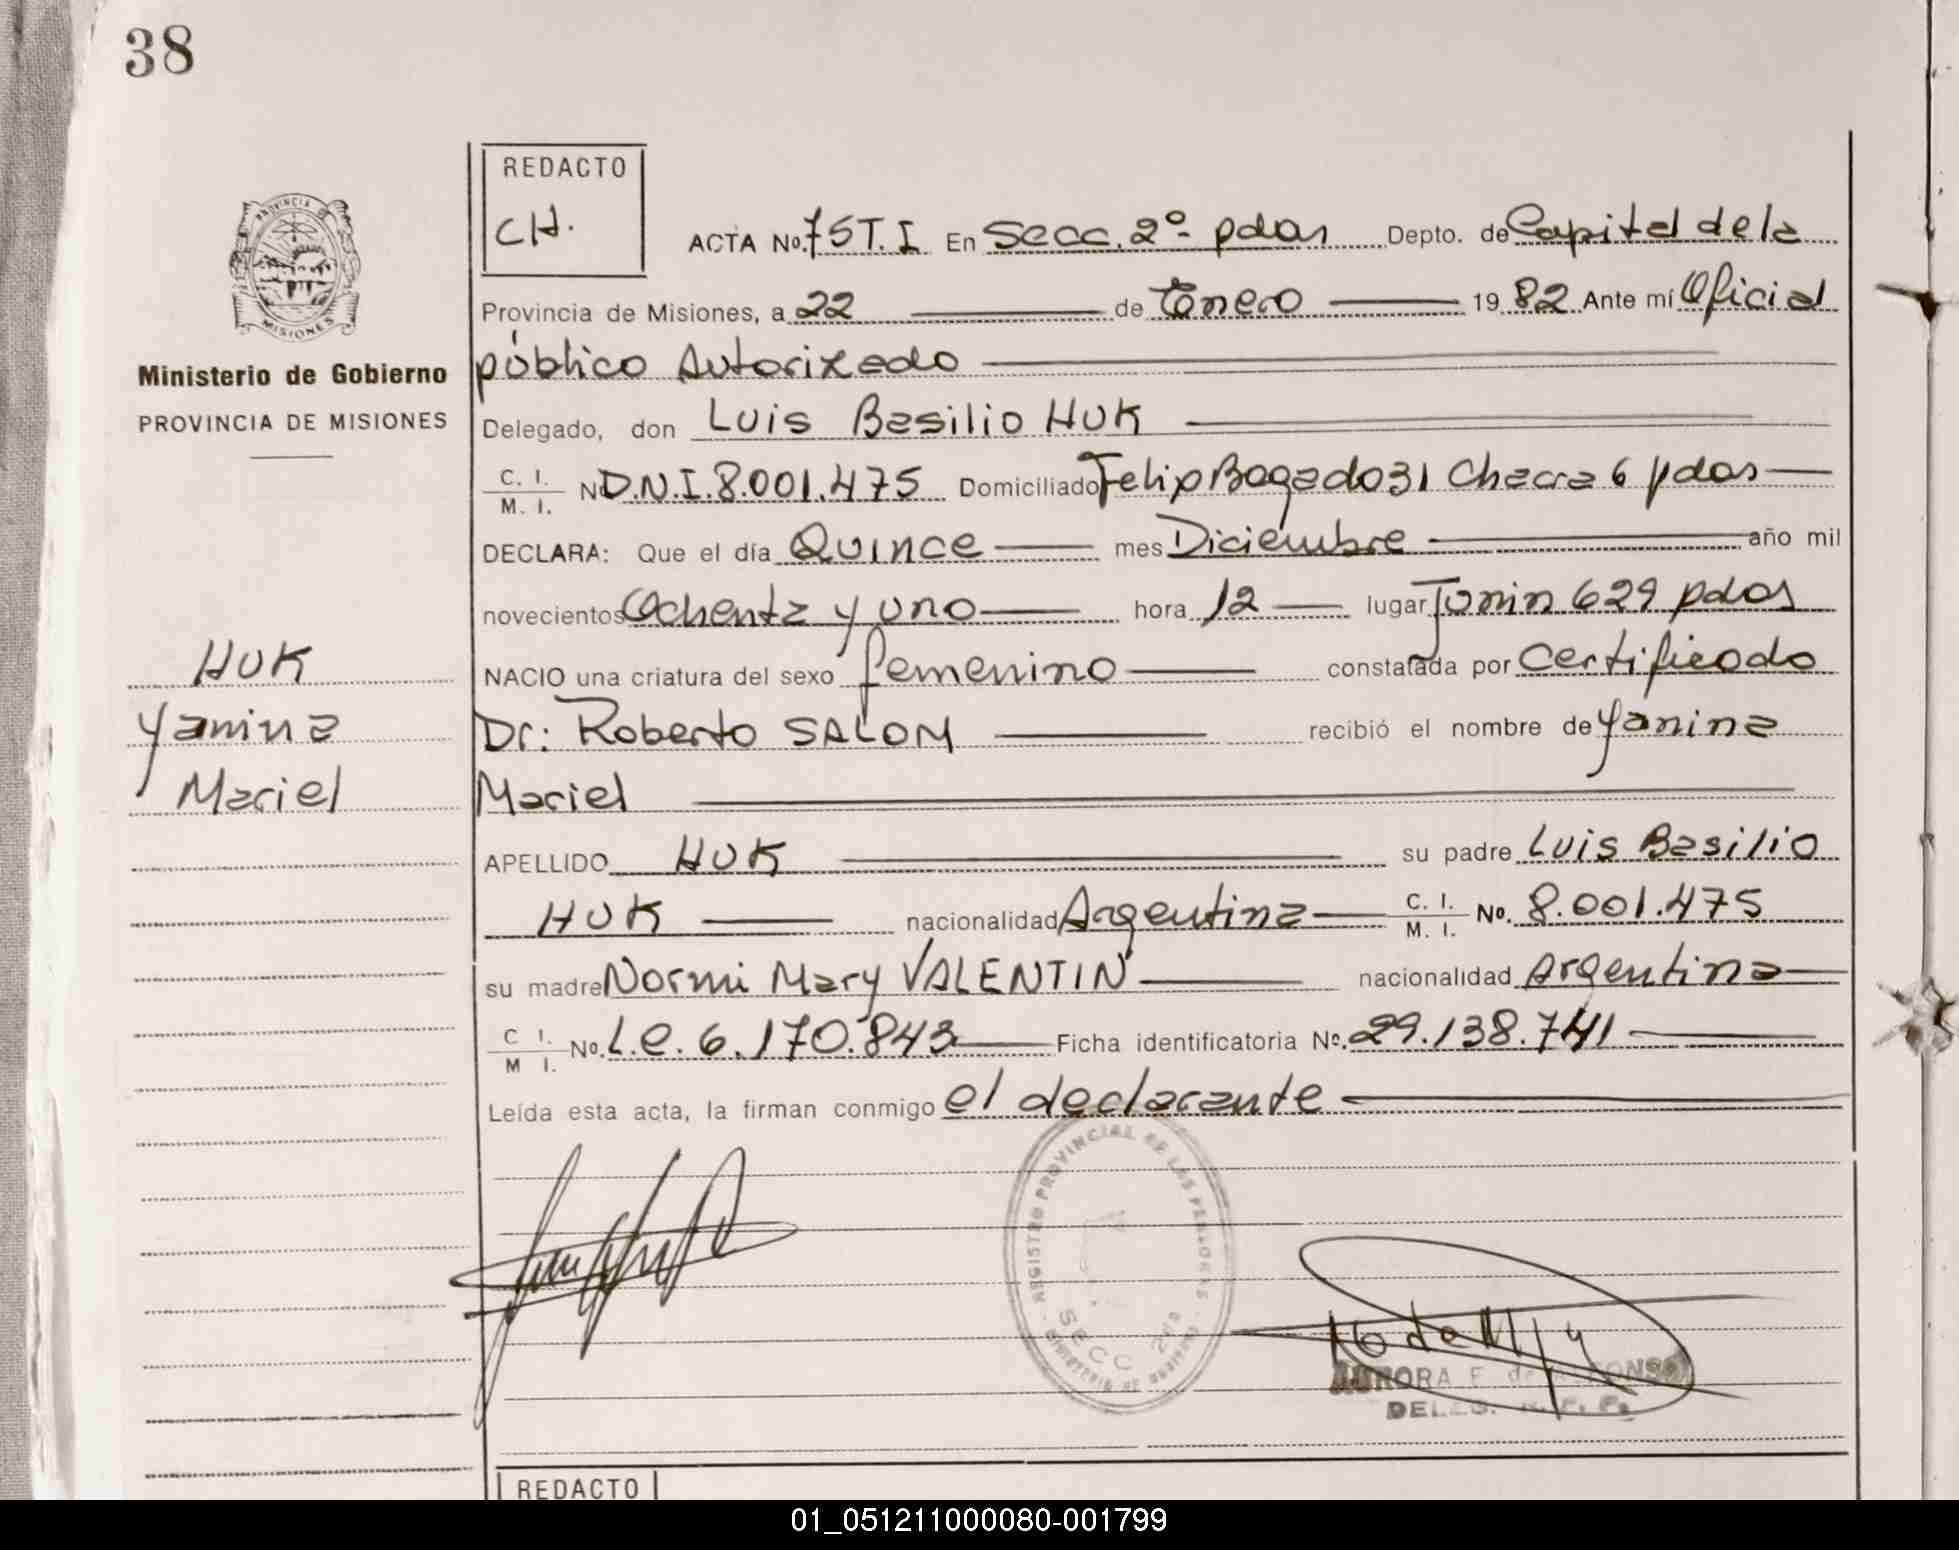 38
REDACTO
CH.
PROVINCIA DE
MISIONES
Ministerio de Gobierno
PROVINCIA DE MISIONES
ACTA No. 75 T. I En Secc. 2º pdas Depto. de Capital de la
Provincia de Misiones, a 22 de Enero 19 82 Ante mí Oficial
público Autorizado
Delegado, don Luis Basilio HUK
C. I.
M. I. N D.N.I. 8.001.475 Domiciliado Felix Bogado 31 Chacra 6 pdas
DECLARA: Que el día Quince mes Diciembre año mil
novecientos Ochenta y uno hora 12 lugar Junin 629 pdas
NACIO una criatura del sexo femenino constatada por Certificado
Dr: Roberto SALOM recibió el nombre de Yanina
Mariel
HUK
Yanina
Mariel
APELLIDO HUK su padre Luis Basilio
HUK nacionalidad Argentina C. I.
M. I. No. 8.001.475
su madre Normi Mary VALENTIN nacionalidad Argentina
C I.
M I. No. L.C. 6.170.843 Ficha identificatoria No. 29.138.741
Leída esta acta, la firman conmigo el declarante
REGISTRO PROVINCIAL DE LAS PERSONAS
SECC 2da
MINISTERIO DE GOBIERNO
AURORA F. de ALFONSO
DELEG. R. P. P.
REDACTO
01_051211000080-001799